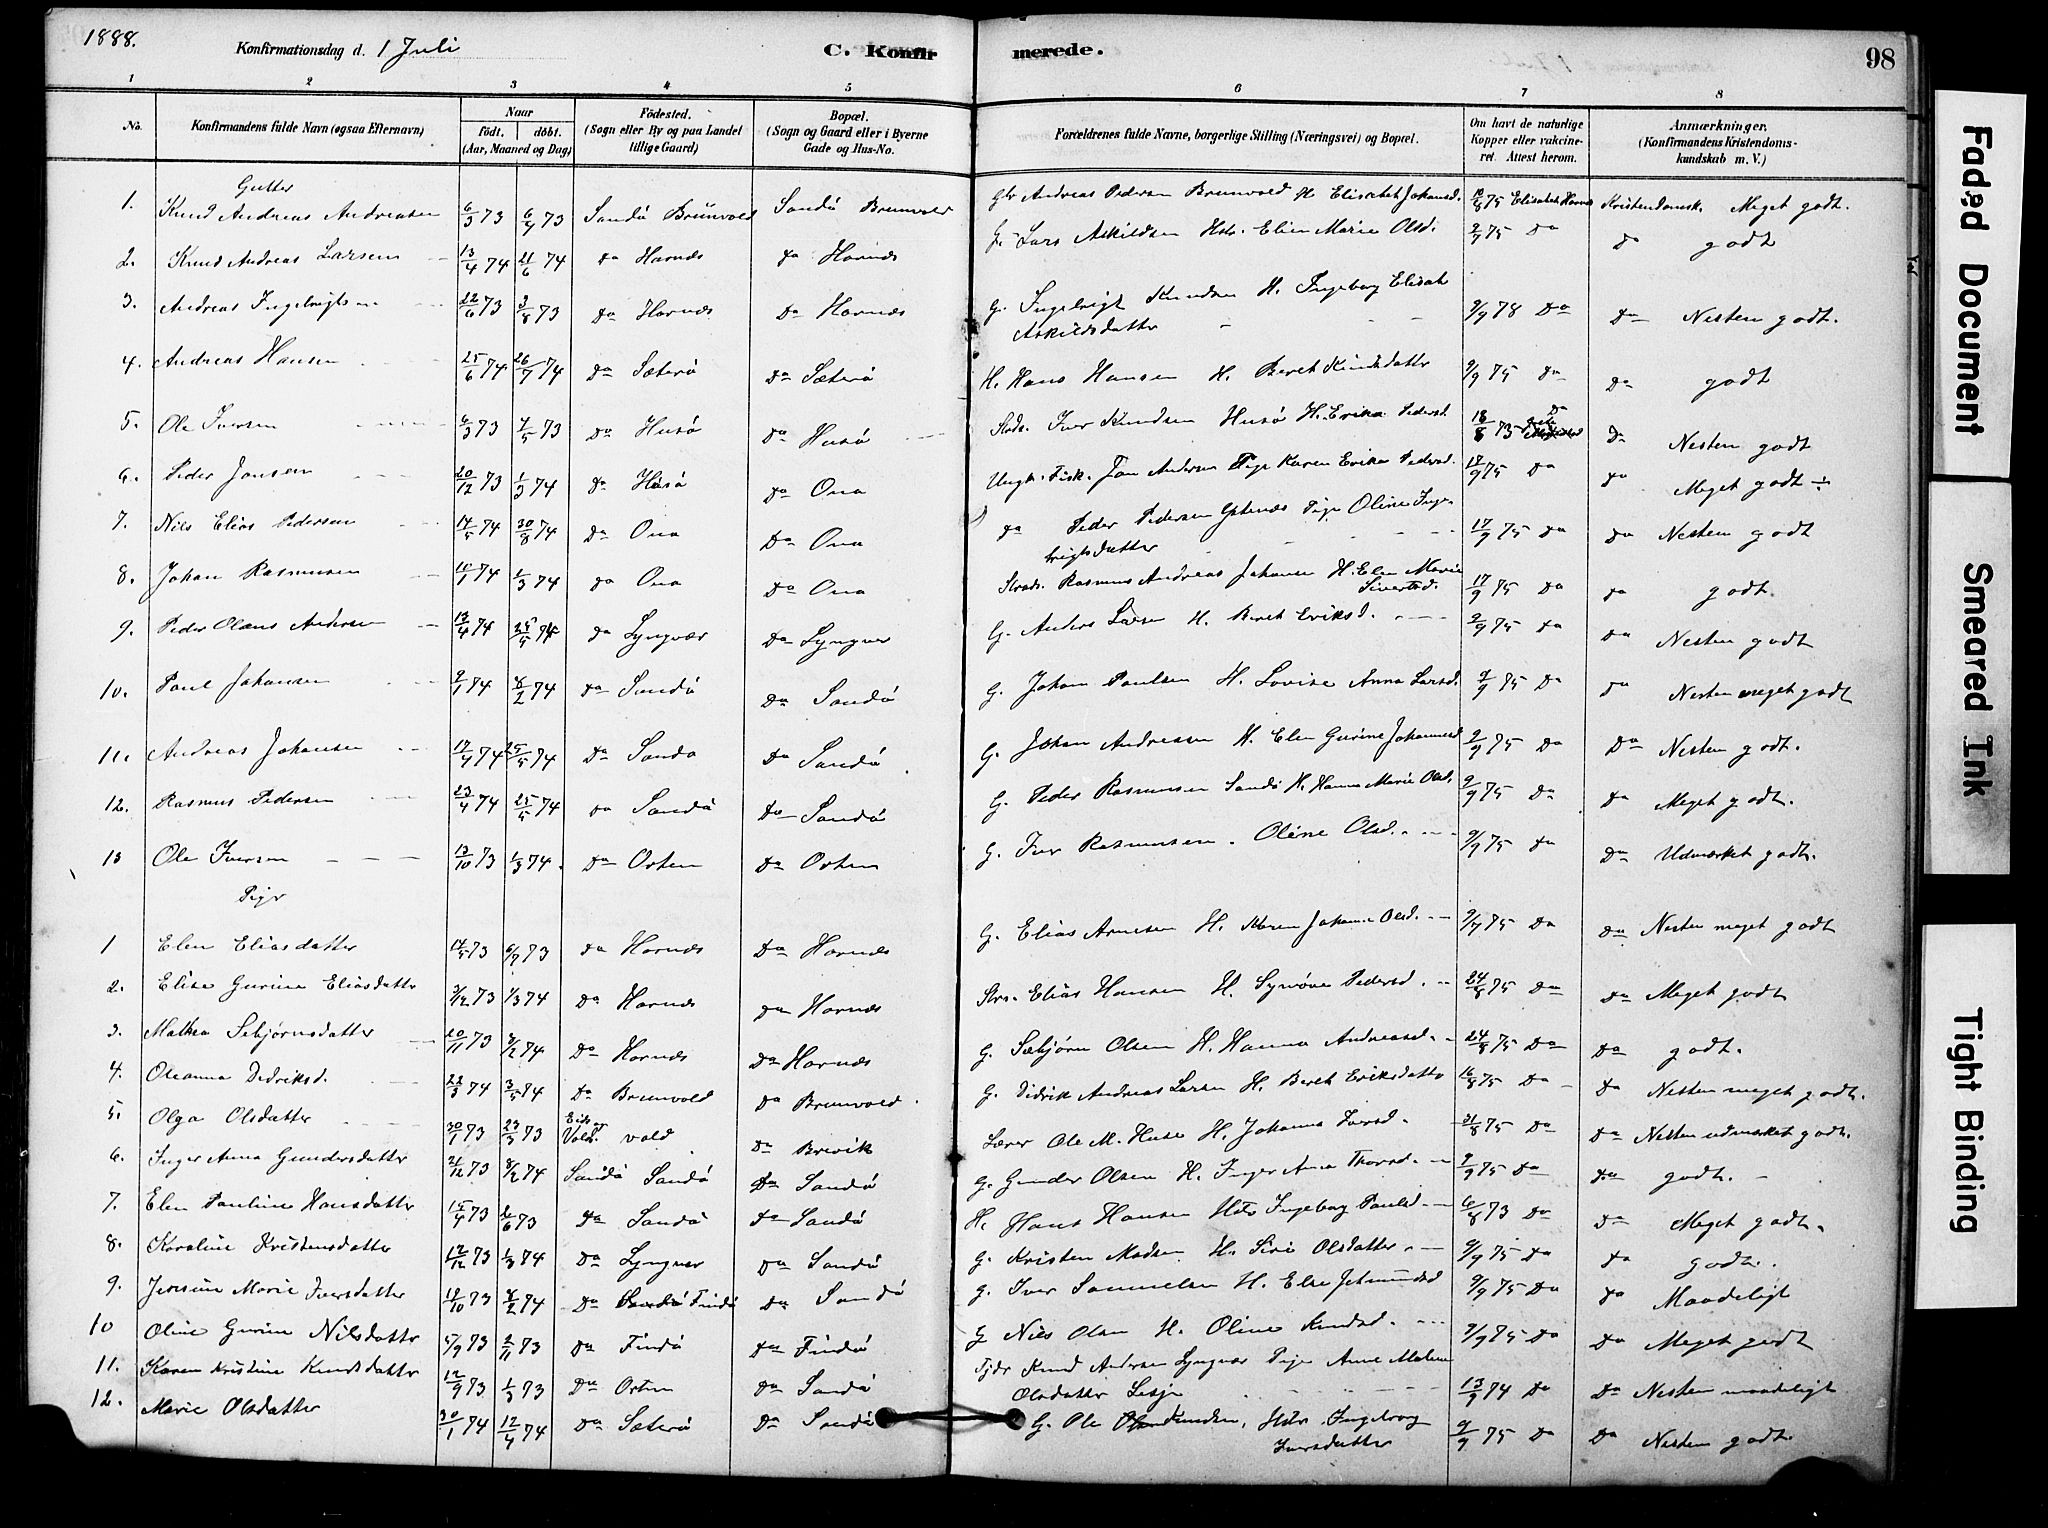 1888.
Konfirmationsdag d. 1 Juli
C. Konfirmerede.
98
1 2 3 4 5 6 7 8
No.
Konfirmandens fulde Navn (ogsaa Efternavn)
Naar
födt. döbt.
(Aar, Maaned og Dag)
Födested.
(Sogn eller By og paa Landet
tillige Gaard)
Bopæl.
(Sogn og Gaard eller i Byerne
Gade og Hus-No.
Forældrenes fulde Navne, borgerlige Stilling (Næringsvei) og Bopæl.
Om havt de naturlige
Kopper eller vakcine-
ret. Attest herom.
Anmærkninger.
(Konfirmandens Kristendoms-
kundskab m. V.)
Gutter
1. Knud Andreas Andreasen 6/3 73 6/4 73 Sandö Brunvold Sandö Brunvold Gbr Andreas Pedersen Brunvold H Elisabet Johansd. 75 Elisabet Hornes Kristendomsk. Meget godt.
2. Knud Andreas Larsen 13/4 74 21/6 74 Da Harnæs Da Harnæs G. Lars Askildsen Hstr. Elien Marie Olsd. 2/9 75 Da Da godt
3. Andreas Ingebrigtsen 22/6 73 3/8 73 Da Harnæs Da Harnæs G. Ingebrigt Knudsen H. Ingeborg Elisab
Askildsdatter 9/9 78 Da Da Nesten godt.
4. Andreas Hansen 25/6 74 26/7 74 Da Sæterö Da Sæterö H. Hans Hansen H. Beret Knudsdatter 9/9 75 Da Da godt
5. Ole Iversen 6/3 73 4/5 73 Da Husö Da Husö Strds. Iver Knudsen Husö H. Erika Pedersd. 18/8 73 Da Nesten godt
6. Peder Jansen 20/12 73 1/3 74 Da Husö Da Ona Ungk. Fisk. Jan Andersen Pige Karen Erika Pedersd. 17/9 75 Da Da Meget godt ÷
7. Nils Elias Pedersen 14/5 74 30/8 74 Da Ona Da Ona Da Peder Pedersen Pige Oline Inge-
brigtsdatter 17/9 75 Da Da Nesten godt
8. Johan Rasmusen 10/1 74 1/3 74 Da Ona Da Ona Strds. Rasmus Andreas Johansen H. Elen Marie
Sivertsd. 17/9 75 Da Da godt.
9. Peder Olaus Andersen 13/4 74 25/5 74 Da Lyngvær Da Lyngvær G. Anders Larsen H. Beret Eriksd. 9/9 75 Da Da Nesten godt
10. Paul Johansen 2/1 74 8/2 74 Da Sandö Da Sandö G. Johan Paulsen H. Lovise Anna Larsd. 9/9 75 Da Da Nesten meget godt
11. Andreas Johansen 17/4 74 25/5 74 Da Sandö Da Sandö G. Johan Andreasen H. Elen Gurine Johannesd 9/9 75 Da Da Nesten godt.
12. Rasmus Pedersen 23/4 74 25/5 74 Da Sandö Da Sandö G. Peder Rasmusen Sandö H. Hanna Marie Olsd. 9/9 75 Da Da Meget godt.
13 Ole Iversen 13/10 73 1/3 74. Da Orten Da Orten G. Iver Rasmusen. Oline Olsd. 9/9 75 Da Da Udmærket godt.
Piger
1 Elen Eliasdatter 14/5 73 6/7 73 Da Harnæs Da Harnæs G. Elias Arnesen H. Karen Johanne Olsd. 9/9 75 Da Da Nesten meget godt
2. Elise Gurine Eliasdattr 3/12 73 1/3 74 Da Harnæs Da Harnæs Strs. Elias Hansen H. Synöve Pedersd. 24/8 75 Da Da Meget godt
3. Mathea Sebjörnsdatter 20/11 73 8/2 74 Da Harnæs Da Harnæs G. Sæbjörn Olsen H. Hanna Andreasd. 24/8 75 Da Da godt.
4. Oleanna Dedriksd. 22/3 74 3/5 74 Da Brunvold Da Brunvold. G. Didrik Andreas Larsen H. Beret Eriksdattr 16/8 75 Da Da Nesten meget godt.
5. Olga Olsdatter 30/1 73 23/3 73 Eids og
Vold. vold Da Brevik Lærer Ole M. Huse H. Johanna Iversd. 31/8 75 Da Da Nesten udmærket godt.
6. Inger Anna Gundersdatter 21/12 73 8/2 74 Sandö Sandö Da Sandö G. Gunder Olsen H. Inger Anna Thorsd. 9/9 75 Da Da godt.
7. Elen Pauline Hansdatter 15/4 73 2/6 73 Da Sandö Da Sandö H. Hans Hansen Hstr Ingeborg Paulsd 6/8 73 Da Da Meget godt.
8. Karoline Kristensdatter 12/12 73 1/3 74 Da Lyngvær Da Sandö G. Kristen Madsen H. Siri Olsdatter. 9/9 75 Da Da godt.
9. Jensine Marie Iversdatter 19/10 73 8/2 74 Da Findö Da Sandö G. Iver Samuelsen H. Else Jetmundsd 9/9 75 Da Da Maadeligt
10 Oline Gurine Nilsdattr 5/9 73 2/11 73 Da Findö Da Findö G Nils Olsen H. Oline Knudsd. 9/9 75 Da Da Meget godt
11. Karen Kristine Knudsdatter 12/9 73 1/3 73 Da Orten Da Sandö Tjdr Knud Andersen Lyngvær Pige Anne Malene
Olsdatter Lesje 13/9 74 Da Da Nesten maadeligt
12. Marie Olsdatter 30/1 74 12/4 74 Da Sæterö Da Sandö G. Ole Knudsen, Hstr Ingeborg
Iversdatter 9/9 75 Da Da Nesten godt.
Faded Document
Smeared Ink
Tight Binding